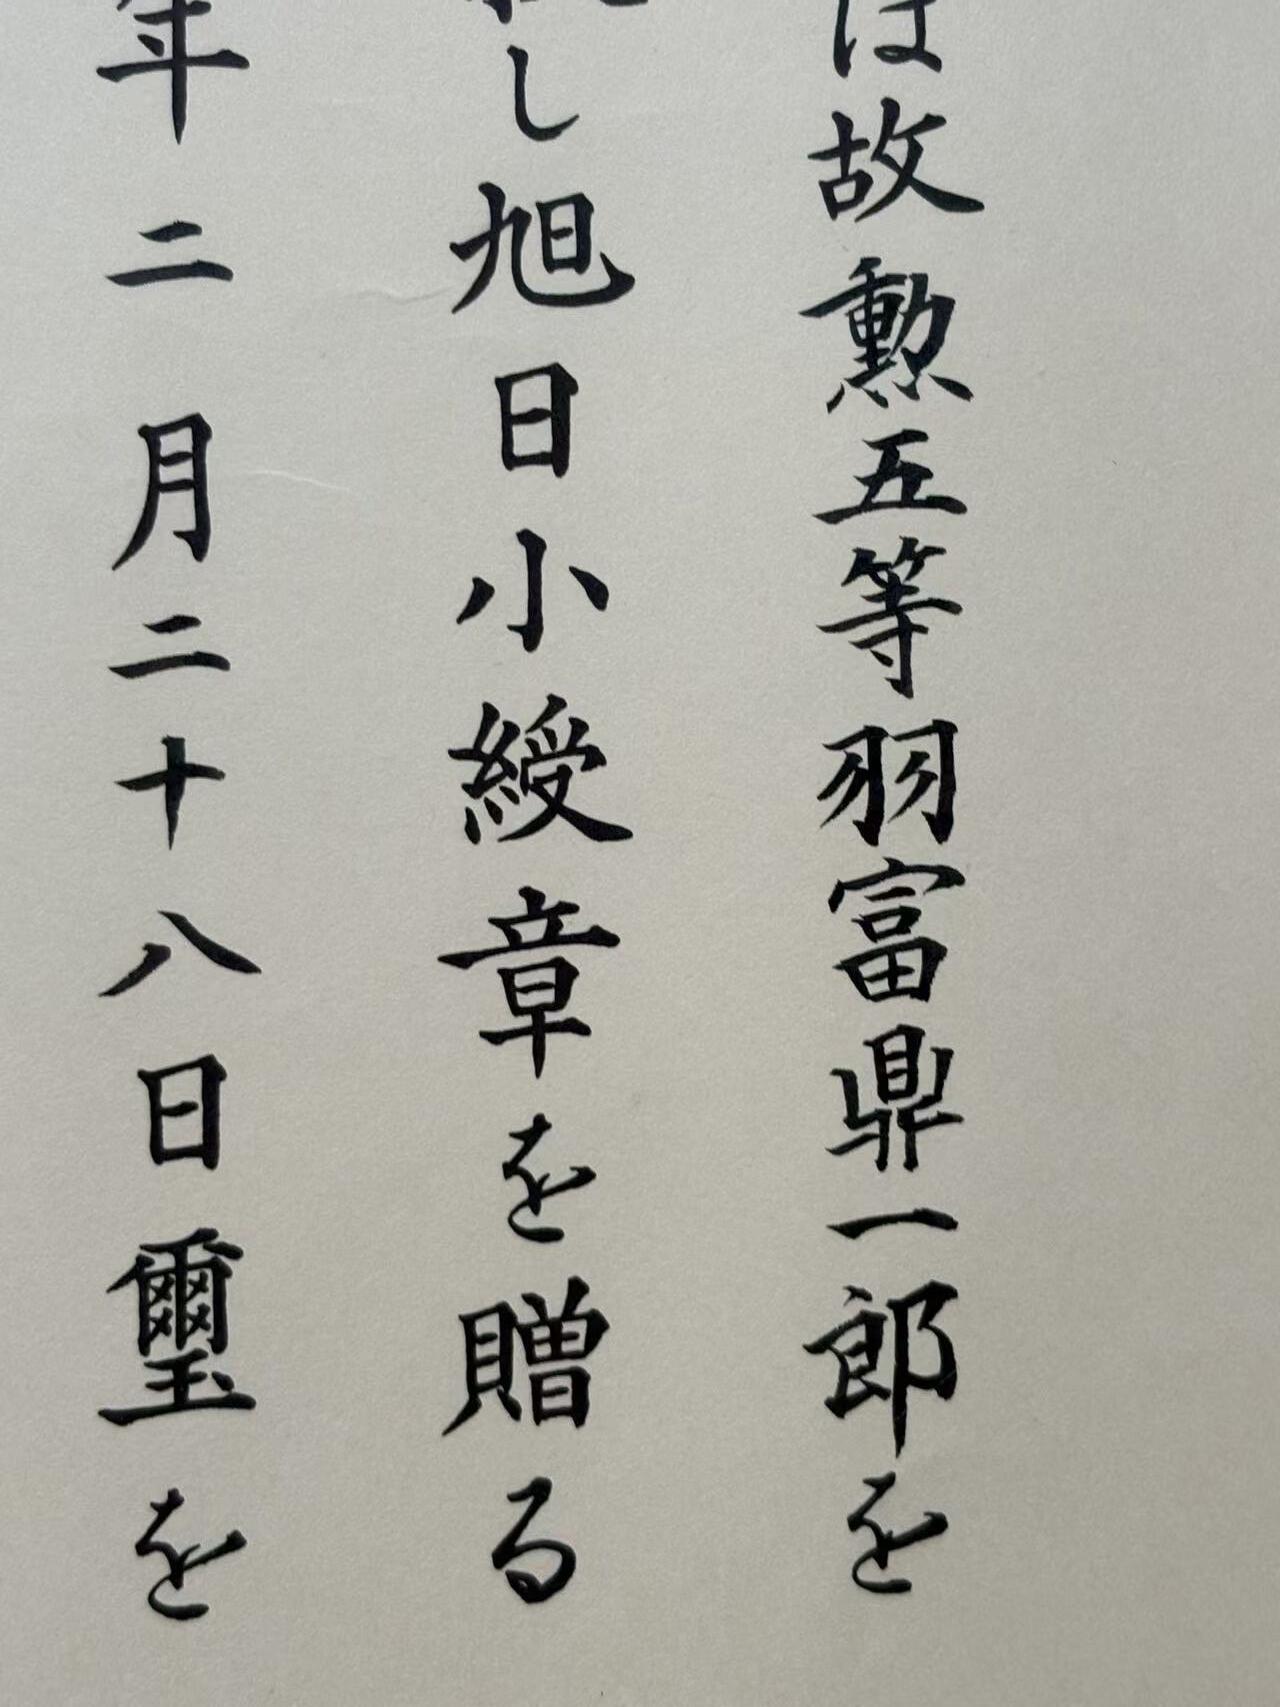 は故勲五等羽富鼎一郎を
し旭日小綬章を贈る
年二月二十八日璽を